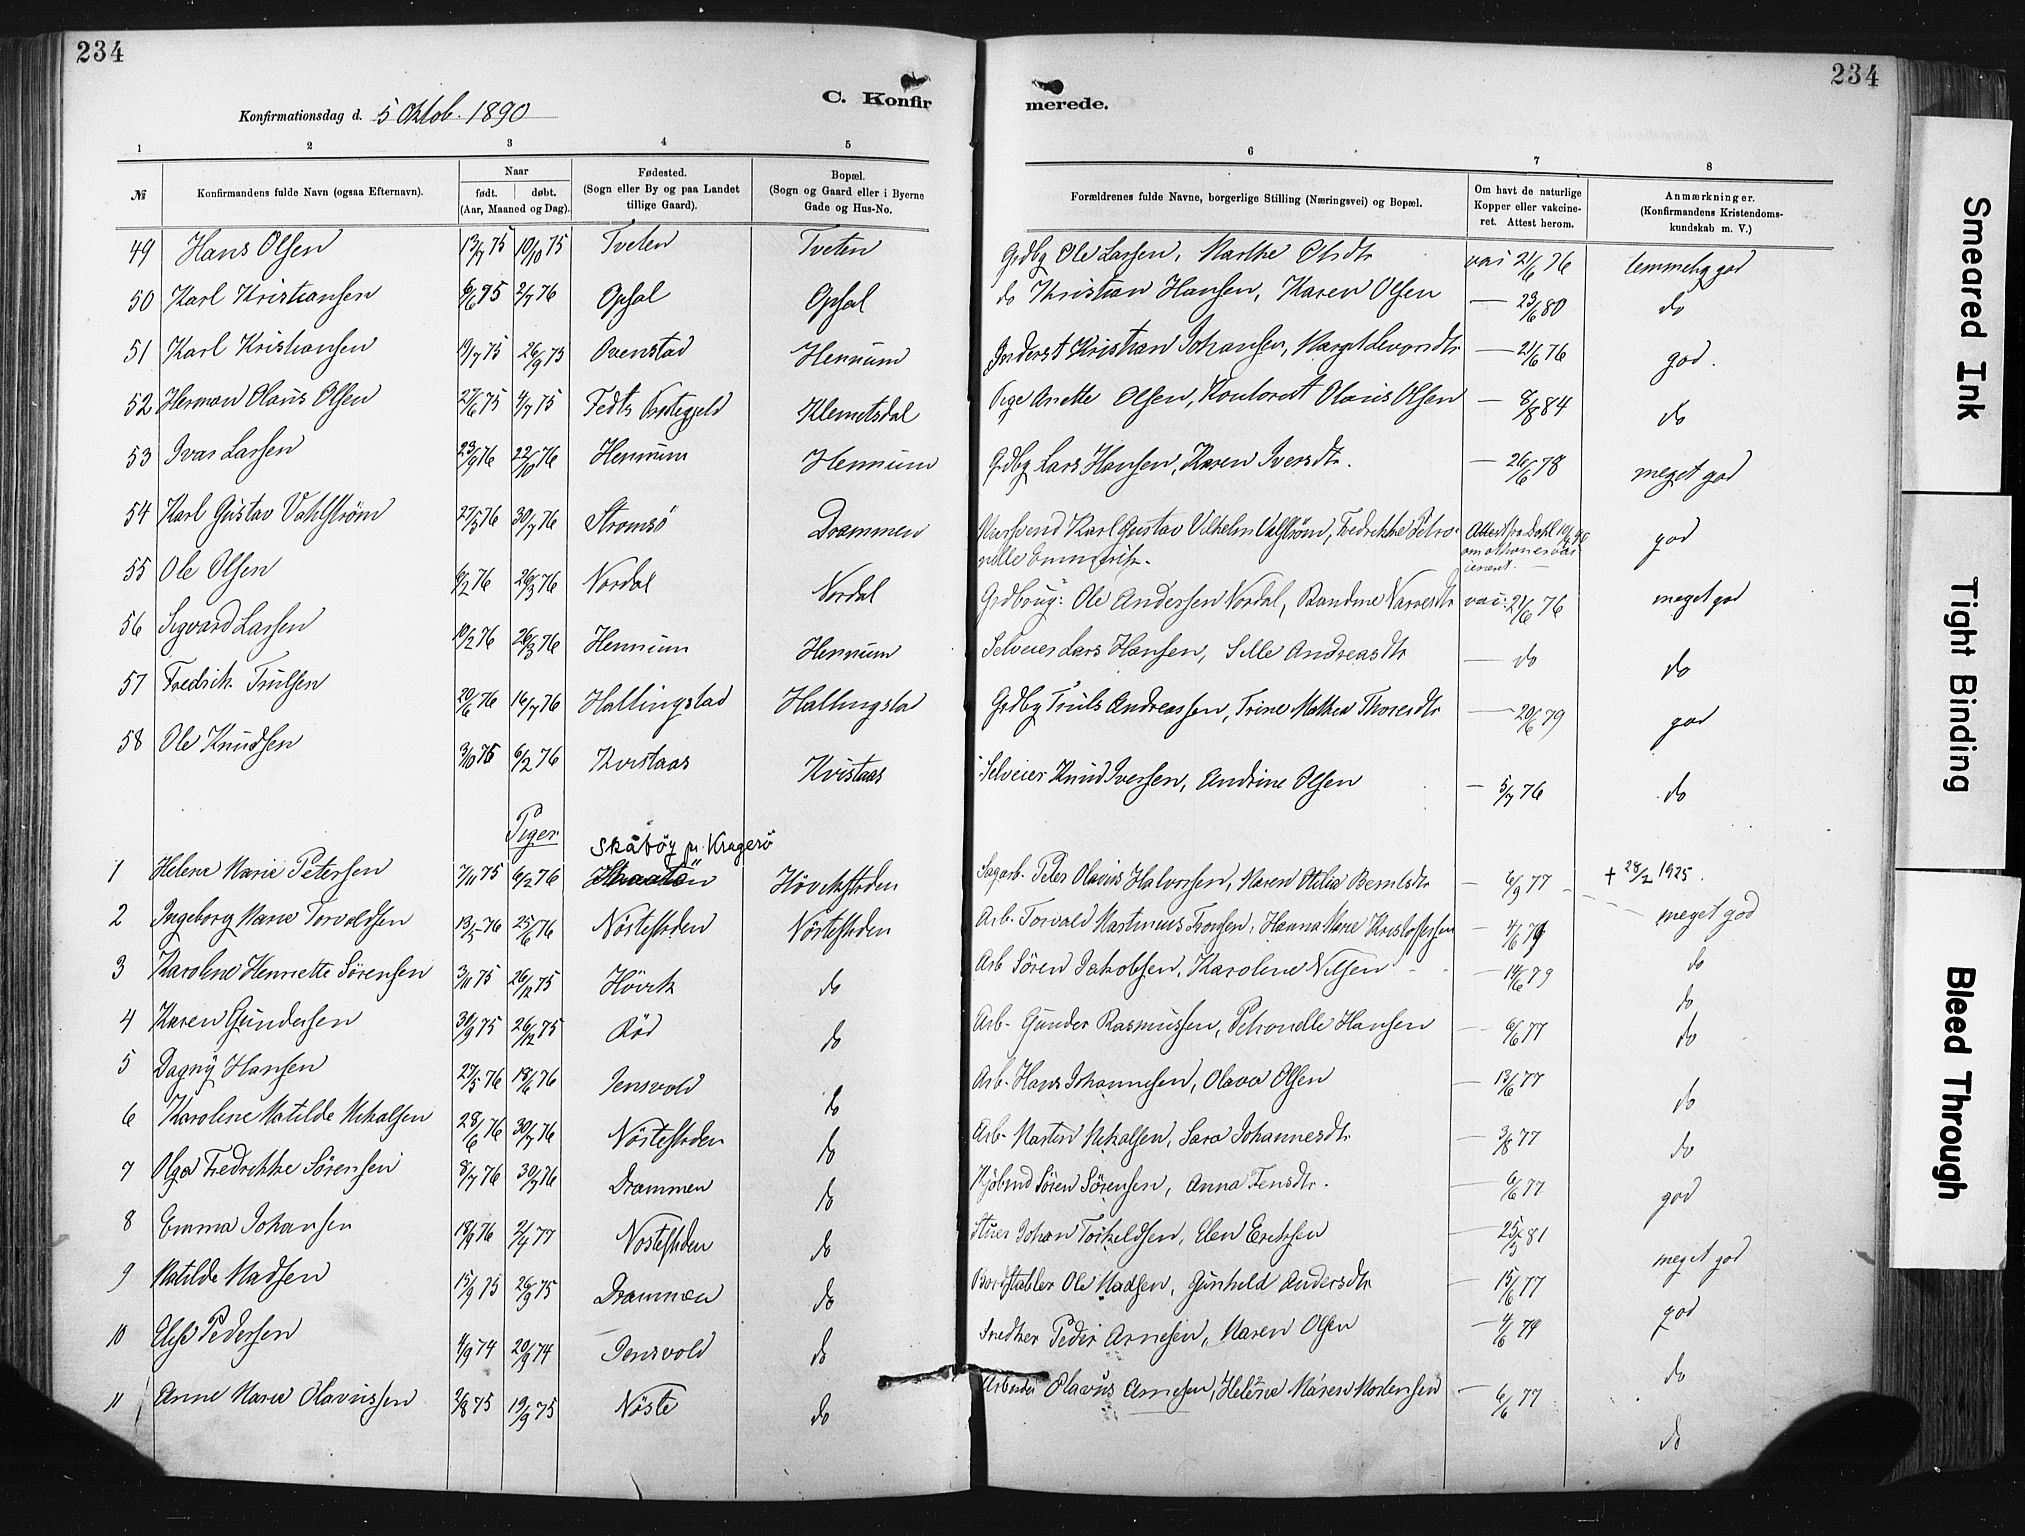 234
234
C. Konfir
merede.
Konfirmationsdag d. 5 Oktob. 1890
1 2 3 4 5 6 7 8
№
Konfirmandens fulde Navn (ogsaa Efternavn).
Naar
født. døbt.
(Aar, Maaned og Dag).
Fødested.
(Sogn eller By og paa Landet
tillige Gaard).
Bopæl.
(Sogn og Gaard eller i Byerne
Gade og Hus-No.
Forældrenes fulde Navne, borgerlige Stilling (Næringsvei) og Bopæl.
Om havt de naturlige
Kopper eller vakcine-
ret. Attest herom.
Anmærkninger.
(Konfirmandens Kristendoms-
kundskab m. V.)
49 Hans Olsen 13/7 75 10/10 75 Tveten Tveten Grdbg Ole Larsen, Marthe Olsdtr 21/6 76 temmelig god
50 Karl Kristiansen 2/7 76 Opsal Opsal do Kristian Hansen, Karen Olsen — 23/6 80 do
51 Karl Kristiansen 19/7 75 26/9 75 Ovenstad Hennum Kristian Johansen, — 21/6 76 god.
52 Herman Olaus Olsen 27/6 75 4/7 75 Klemetsdal Pige Anette Olsen, Olaus Olsen — 8/8 84 do
53 Ivar Larsen 23/9 76 22/10 76 Hennum Hennum Grdbg Lars Hansen, Karen Iversdtr. — 26/6 78 meget god
54 Karl Gustav Vahlstrøm 27/5 76 30/7 76 Strømsö Drammen Karl Gustav Vilhelm Valstrøm, Fredrikke Petro-
nelle Attest fra god
55 Ole Olsen 6/2 76 26/3 76 Nordal Nordal Grdbrug: Ole Andersen Nordal, 21/6 76 meget god
56 Sigvard Larsen 10/2 76 26/3 76 Hennum Hennum Selveier Lars Hansen, Sille Andreasdtr — do do
57 Fredrik Trulsen 20/6 76 16/7 76 Hallingstad Hallingstad Grdbg Truls Andreassen, Trine Mathea Thoresdtr — 20/6 79 god
58 Ole Knudsen 3/10 75 6/2 76 Kvistaas Kvistaas Selveier Knud Iversen, Andrine Olsen — 5/7 76 do
Piger
Skåtöy pr. Kragerö
1 Helene Marie Petersen 7/11 75 6/2 76 Hövikstøden Sagarb. Peter Olavus Halvorsen, Maren Otilia Berntsdtr — 6/9 77 + 28/2 1925.
meget god
2 Ingeborg Marie Torvaldsen 13/5 76 25/6 76 Nöstestøden Nöstestøden Arb. Torvald Martinius Tronsen, Hanna Marie Kristoffersen — do
3 Karoline Henriette Sörensen 3/11 75 26/12 75 Hövik do Arb Sören Jakobsen, Karoline Nilsen — 14/6 79 do
4 Karen Gundersen 30/9 75 26/12 75 Röd do Arb. Gunder Rasmussen, Petronelle Hansen — 6/6 77 do
5 Dagny Hansen 27/5 76 18/6 76 Jensvold do Arb. Hans Johannesen, Olava Olsen — 13/6 77 do
6 Karoline Matilde Nikolsen 28/6 76 30/7 76 Nöstestøden do Arb. Martin Nikolsen, Sara Johannesdtr — 3/8 77 do
7 Olga Fredrikke Sörensen 8/7 76 30/7 76 Drammen do Kjøbmd Sören Sörensen, Anna Jensdtr. — 6/6 77 god
8 Emma Johansen 2/4 77 Nöstestøden do Johan Torkeldsen, Elen Eriksen — 25/5 81 meget god
9 Matilde Madsen 15/9 75 26/9 75 Drammen do Bordstabler Ole Madsen, Gunhild Andersdtr — 15/6 77 god
10 Elise Pedersen 4/9 74 20/9 74 Jensvold do Snedker Peder Arnesen, Maren Olsen — 4/6 79 do
11 Anne Marie Olavussen 9/8 75 19/9 75 Nöste do Arbeider Olavus Arnesen, Helene Maren Mortensen — 6/6 77 do
Smeared Ink
Tight Binding
Bleed Through